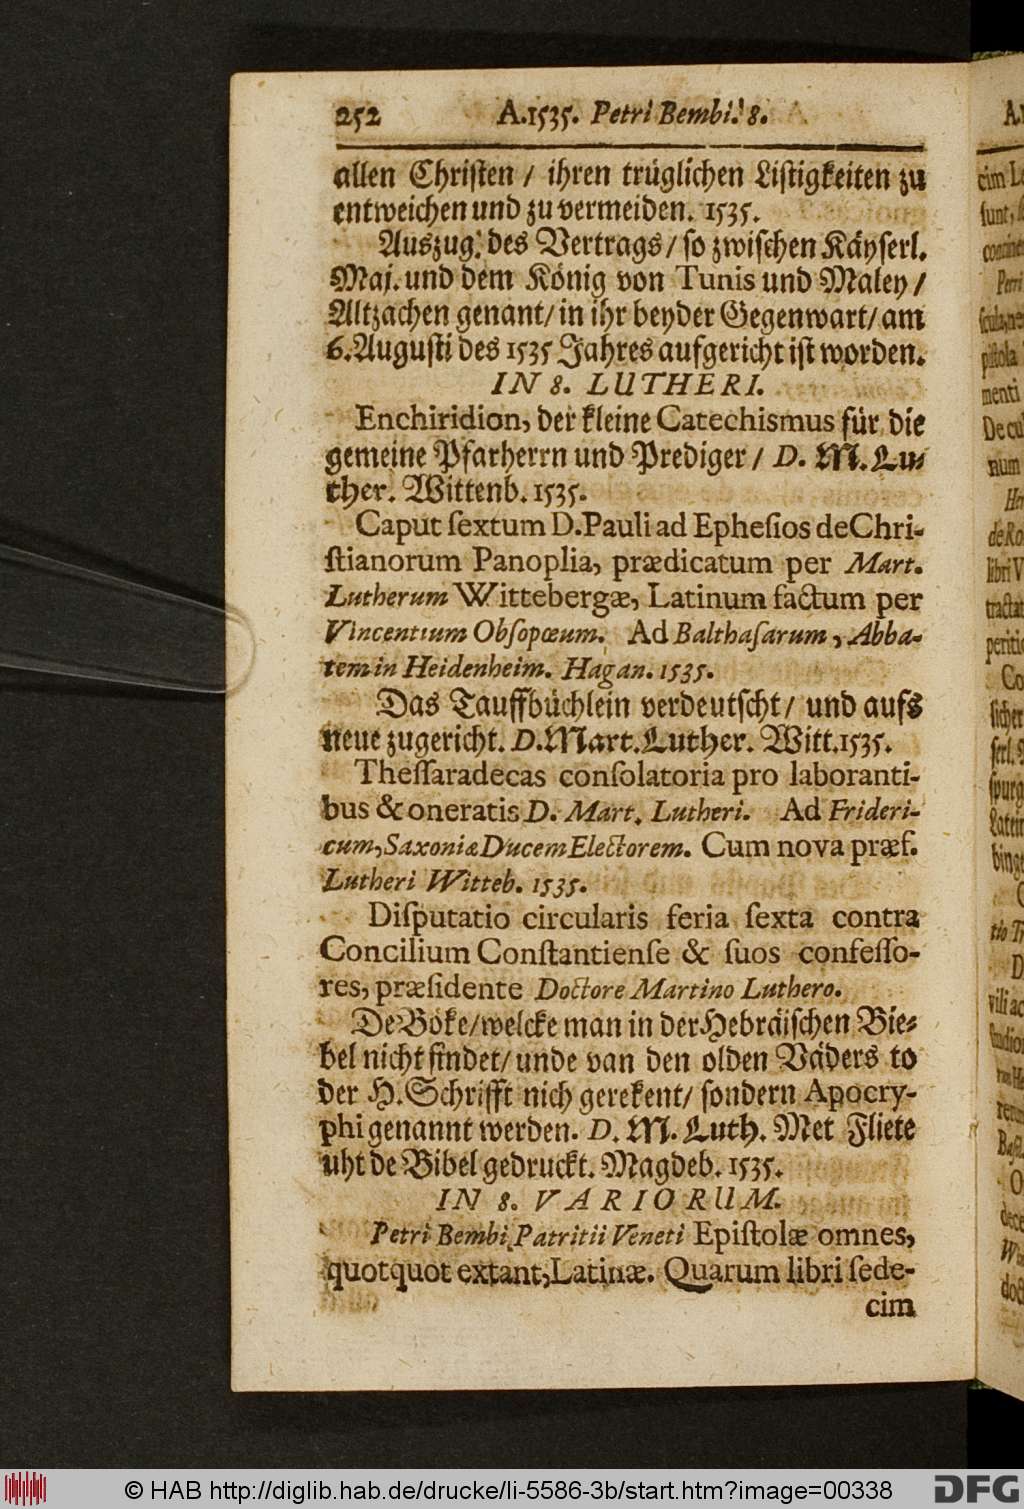 252 A.1535. Petri Bembi. 8.
allen Christen / ihren trüglichen Listigkeiten zu
entweichen und zu vermeiden. 1535.
Auszug des Vertrags / so zwischen Käyserl.
Maj. und dem König von Tunis und Maley /
Altzachen genant / in ihr beyder Gegenwart / am
6. Augusti des 1535 Jahres aufgericht ist worden.
IN 8. LUTHERI.
Enchiridion, der kleine Catechismus für die
gemeine Pfarherrn und Prediger / D. M. Lu-
ther. Wittenb. 1535.
Caput ſextum D. Pauli ad Epheſios de Chri-
ſtianorum Panoplia, prædicatum per Mart.
Lutherum Wittebergæ, Latinum factum per
Vincentium Obſopœum. Ad Balthaſarum, Abba-
tem in Heidenheim. Hagan. 1535.
Das Tauffbüchlein verdeutscht / und aufs
neue zugericht. D. Mart. Luther. Witt. 1535.
Theſſaradecas conſolatoria pro laboranti-
bus & oneratis D. Mart. Lutheri. Ad Frideri-
cum, Saxoniæ Ducem Electorem. Cum nova præf.
Lutheri Witteb. 1535.
Diſputatio circularis feria ſexta contra
Concilium Conſtantienſe & ſuos confeſſo-
res, præſidente Doctore Martino Luthero.
De Böke / welcke man in der Hebräischen Bie-
bel nicht findet / unde van den olden Väders to
der H. Schrifft nich gerekent / sondern Apocry-
phi genannt werden. D. M. Luth. Met Fliete
uht de Bibel gedruckt. Magdeb. 1535.
IN 8. VARIORUM.
Petri Bembi Patritii Veneti Epiſtolæ omnes,
quotquot extant, Latinæ. Quarum libri ſede-
cim
© HAB http://diglib.hab.de/drucke/li-5586-3b/start.htm?image=00338
DFG